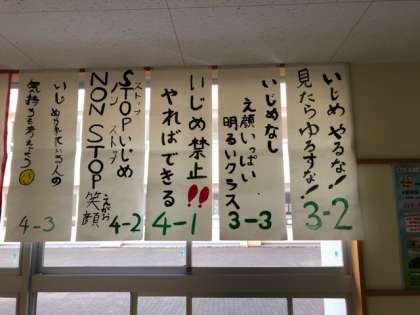 いじめやるな!
見たらゆるすな!
3-2
いじめなし
え顔いっぱい
明るいクラス
3-3
いじめ禁止!!
やればできる
4-1
STOPいじめ
ストップ
NON STOP笑顔
ノンストップ
えがお
4-2
いじめられている人の
気持ちも考えよう
4-3